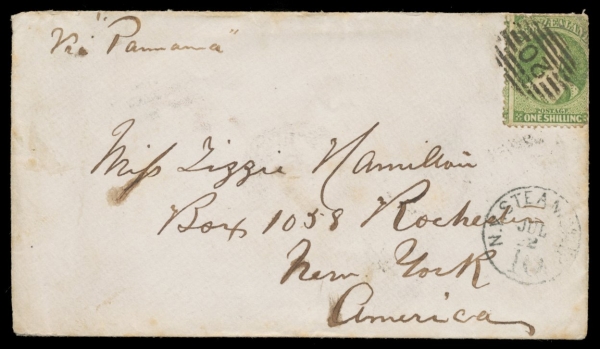 Via "Pannama"
20
POSTAGE
ONE SHILLING
Miss Lizzie Hamilton
Box 1058 Rochester
New York
America
N.Y. STEAM
JUL
2
10